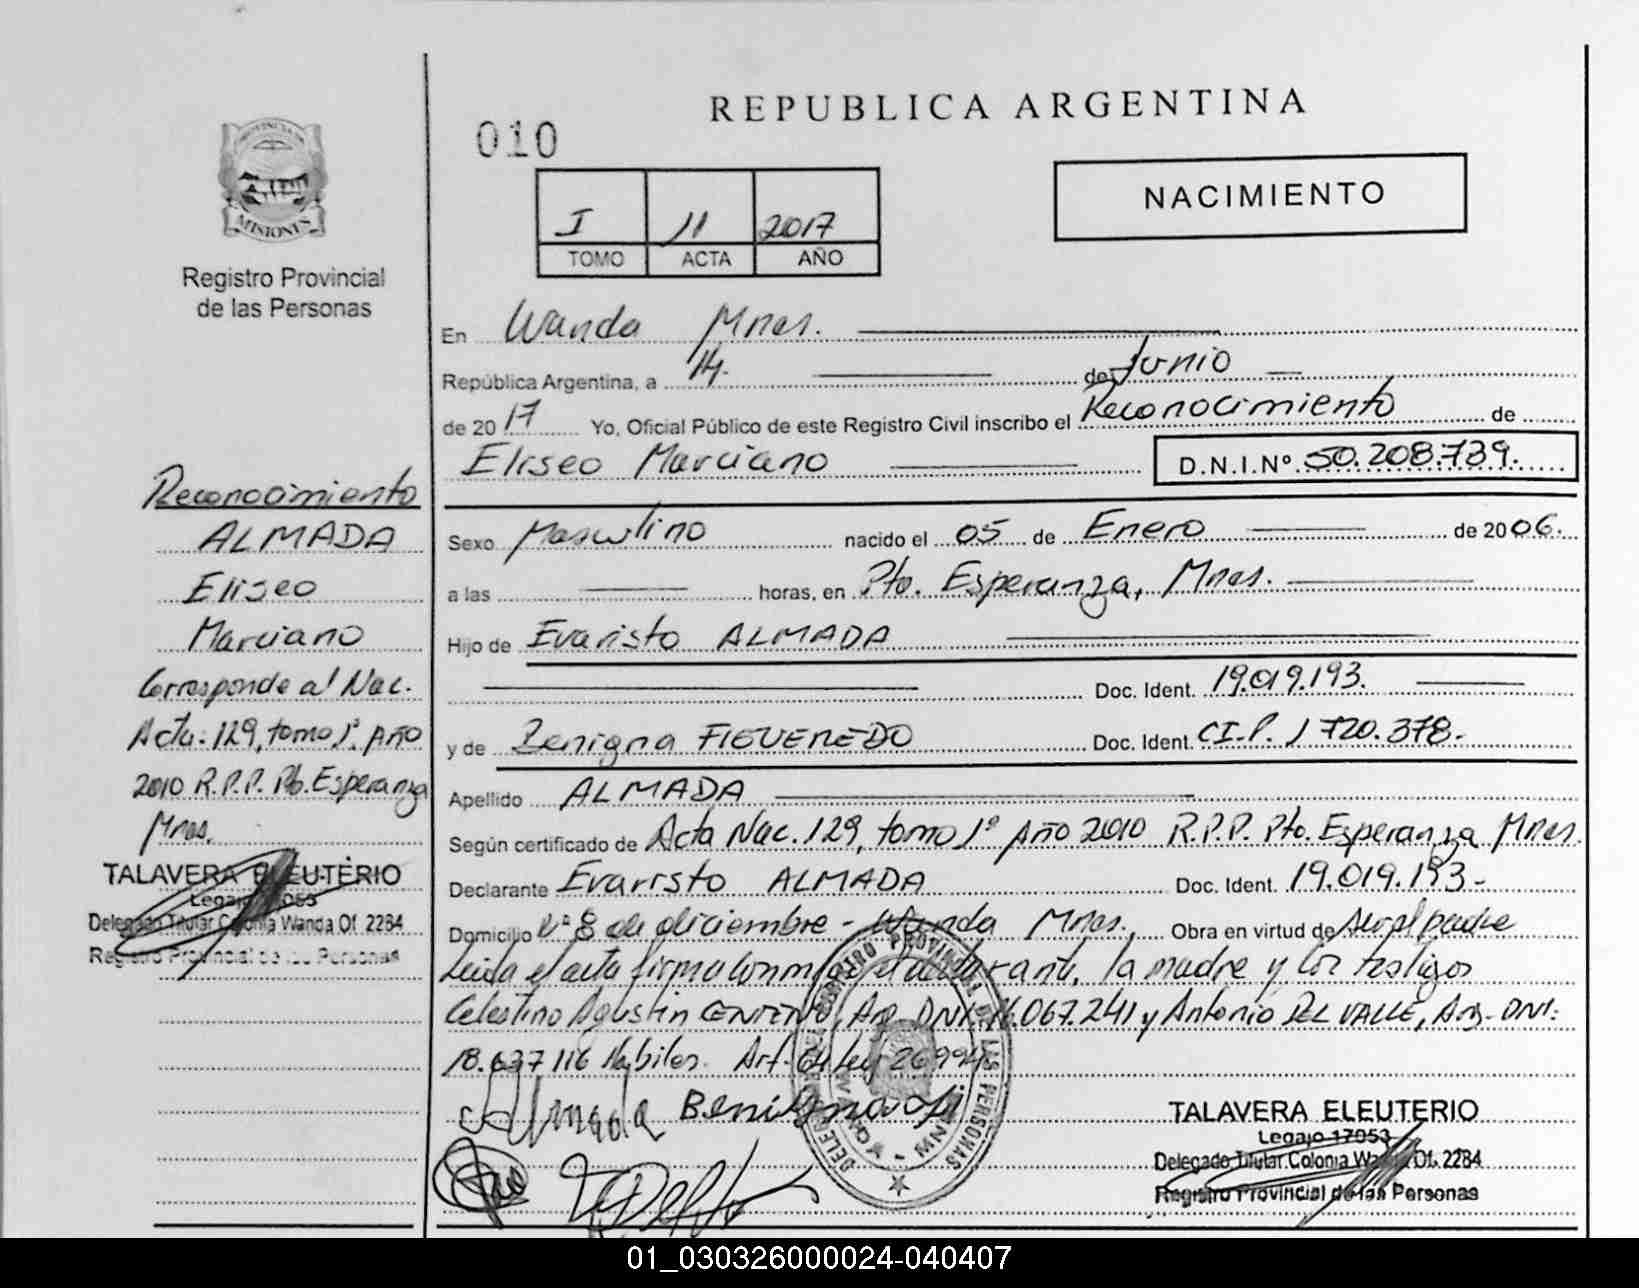 REPUBLICA ARGENTINA
010
NACIMIENTO
I 11 2017
TOMO ACTA AÑO
PROVINCIA DE
MISIONES
Registro Provincial
de las Personas
En Wanda Mnes.
República Argentina, a 14. de Junio
de 2017 Yo, Oficial Público de este Registro Civil inscribo el Reconocimiento de
Eliseo Marciano D.N.I.Nº 50.208.739.
Sexo Masculino nacido el 05 de Enero de 2006.
a las horas, en Pto. Esperanza, Mnes.
Hijo de Evaristo ALMADA
Doc. Ident. 19.019.193.
y de Benigna FIGUEREDO Doc. Ident. C.I.P. 1720.378.-
Apellido ALMADA
Según certificado de Acta Nac. 129, tomo 1º Año 2010 R.P.P. Pto. Esperanza Mnes.
Declarante Evaristo ALMADA Doc. Ident. 19.019.193-
Domicilio Bº 8 de diciembre - Wanda Mnes. Obra en virtud de ser el padre
Leida el acta firma conmigo el declarante, la madre y los testigos
Celestino Agustin CENTENO, Arg. DNI. 16.067.241 y Antonio DEL VALLE, Arg. DNI.
18.637 116 Habiles. Art. 64 Ley 26994
Almada Benigna
TALAVERA ELEUTERIO
Legajo 17053
Delegado Titular Colonia Wanda Of. 2284
Registro Provincial de las Personas
Reconocimiento
ALMADA
Eliseo
Marciano
Corresponde al Nac.
Acta. 129, tomo 1º. Año
2010 R.P.P. Pto. Esperanza
Mnes.
TALAVERA ELEUTERIO
Legajo 17053
Delegado Titular Colonia Wanda Of. 2284
Registro Provincial de las Personas
REGISTRO PROVINCIAL DE LAS PERSONAS
WANDA - MNES
01_030326000024-040407